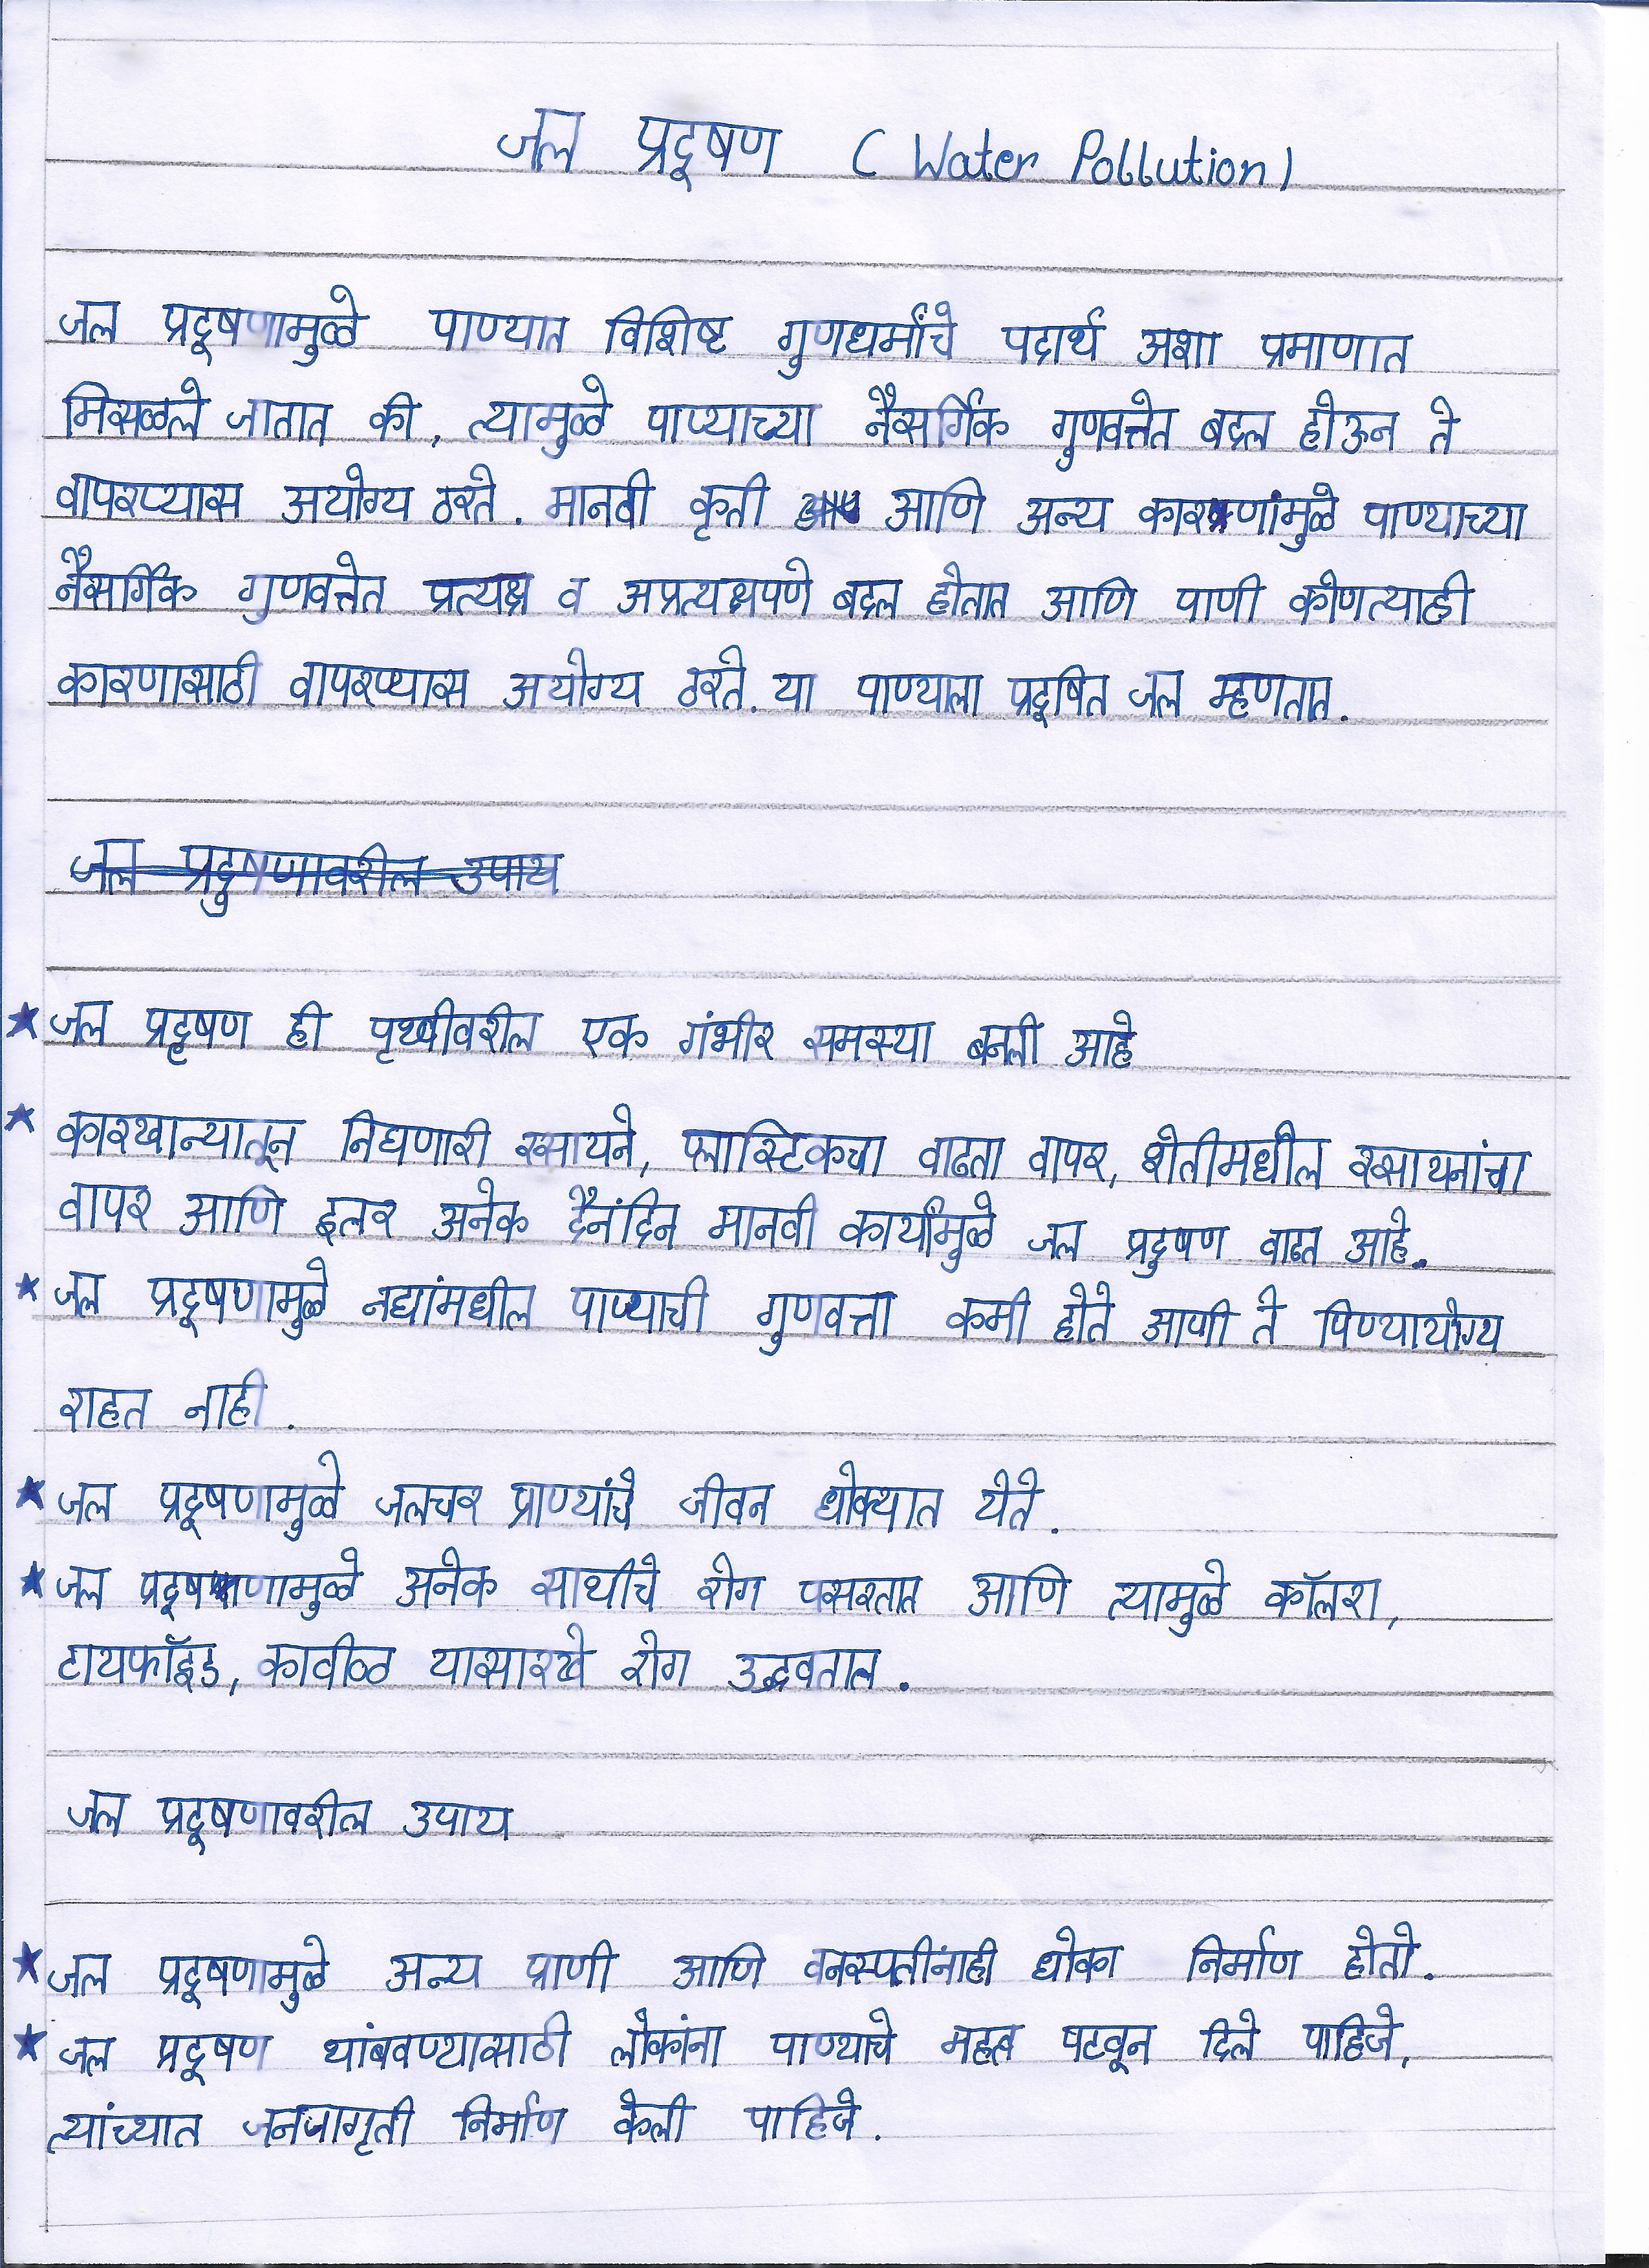 जल प्रदूषण (Water Pollution)
जल प्रदूषणामुळे पाण्यात विशिष्ट गुणधर्मांचे पदार्थ अशा प्रमाणात
मिसळले जातात की, त्यामुळे पाण्याच्या नैसर्गिक गुणवत्तेत बदल होऊन ते
वापरण्यास अयोग्य ठरते. मानवी कृती आणि अन्य कारणांमुळे पाण्याच्या
नैसर्गिक गुणवत्तेत प्रत्यक्ष व अप्रत्यक्षपणे बदल होतात आणि पाणी कोणत्याही
कारणासाठी वापरण्यास अयोग्य ठरते. या पाण्याला प्रदूषित जल म्हणतात.
जल प्रदुषणावरील उपाय
★ जल प्रदूषण ही पृथ्वीवरील एक गंभीर समस्या बनली आहे
★ कारखान्यातून निघणारी रसायने, प्लास्टिकचा वाढता वापर, शेतीमधील रसायनांचा
वापर आणि इतर अनेक दैनंदिन मानवी कार्यांमुळे जल प्रदुषण वाढत आहे.
★ जल प्रदूषणामुळे नद्यांमधील पाण्याची गुणवत्ता कमी होते आणी ते पिण्यायोग्य
राहत नाही.
★ जल प्रदूषणामुळे जलचर प्राण्यांचे जीवन धोक्यात येते.
★ जल प्रदूषणामुळे अनेक साथीचे रोग पसरतात आणि त्यामुळे कॉलरा,
टायफॉइड, कावीळ यासारखे रोग उद्भवतात.
जल प्रदूषणावरील उपाय
★ जल प्रदूषणामुळे अन्य प्राणी आणि वनस्पतींनाही धोका निर्माण होतो.
★ जल प्रदूषण थांबवण्यासाठी लोकांना पाण्याचे महत्व पटवून दिले पाहिजे,
त्यांच्यात जनजागृती निर्माण केली पाहिजे.